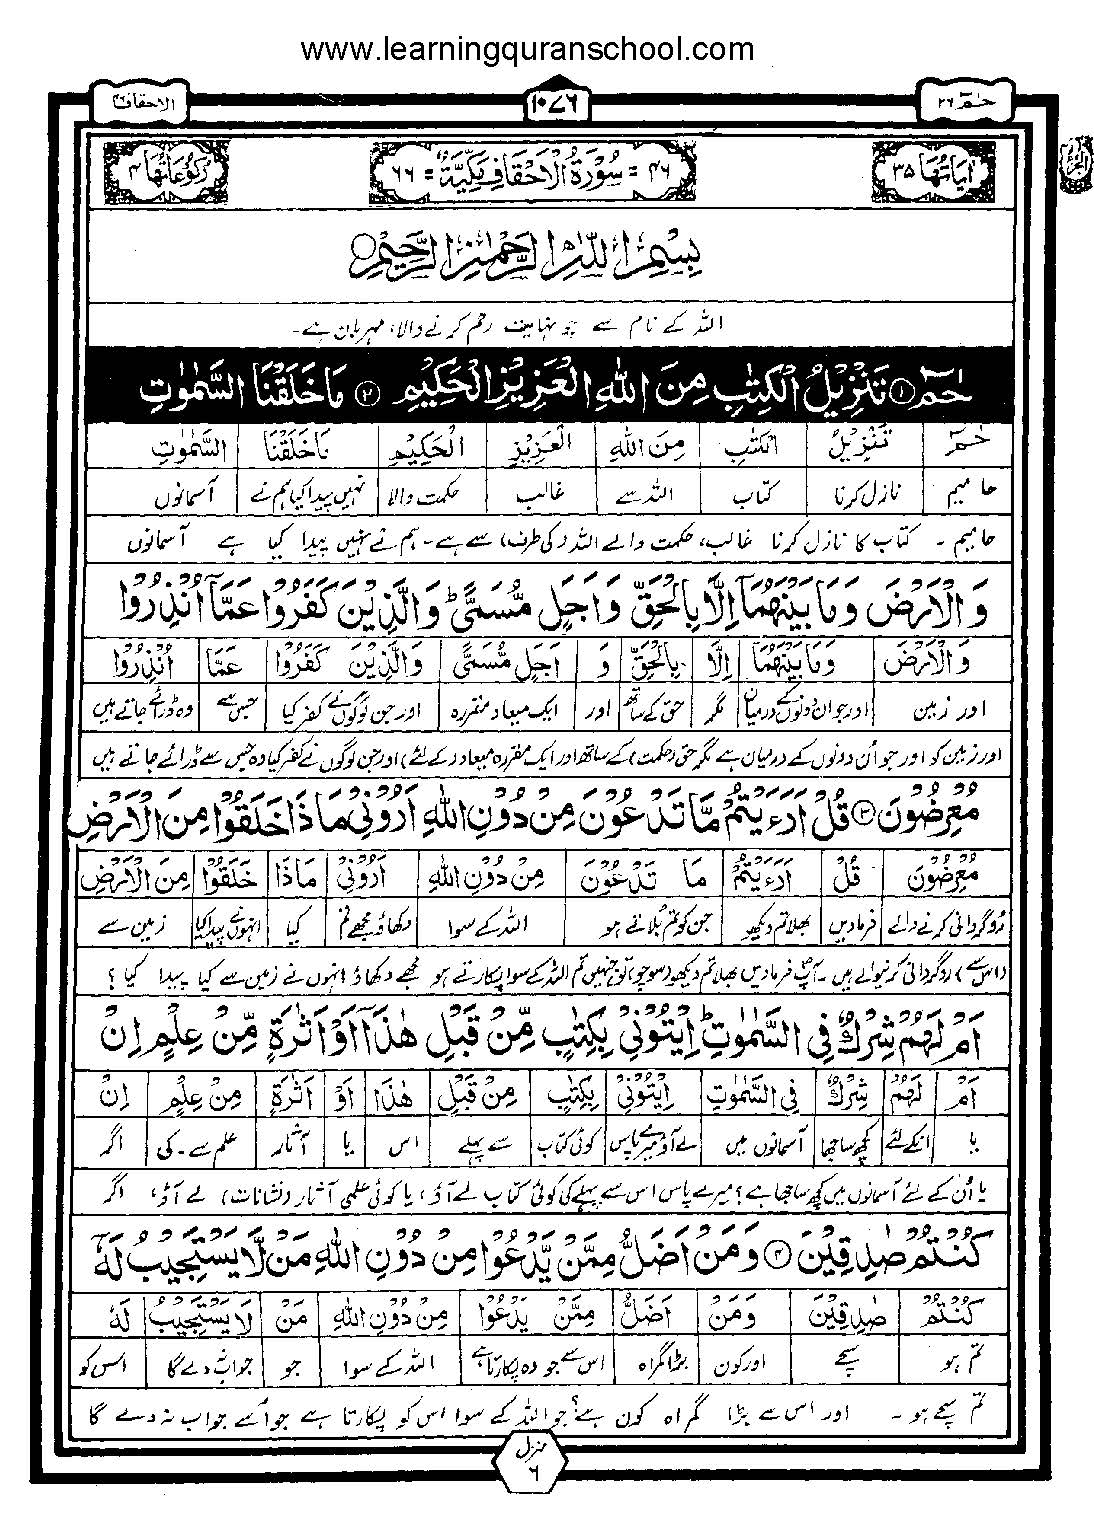 www.learningquranschool.com
الاحقاف ۴۶
۱۰۷۶
حٰمٓ ۲۶
رُكُوْعَاتُهَا ۴
۴۶ = سُوْرَةُ الْاَحْقَافِ مَكِّيَّةٌ = ۶۶
اٰيَاتُهَا ۳۵
بِسْمِ اللّٰهِ الرَّحْمٰنِ الرَّحِيْمِ
اللہ کے نام سے جو نہایت رحم کرنے والا، مہربان ہے۔
حٰمٓ ۱ تَنْزِيْلُ الْكِتٰبِ مِنَ اللّٰهِ الْعَزِيْزِ الْحَكِيْمِ ۲ مَا خَلَقْنَا السَّمٰوٰتِ
حٰمٓ تَنْزِيْلُ الْكِتٰبِ مِنَ اللّٰهِ الْعَزِيْزِ الْحَكِيْمِ مَا خَلَقْنَا السَّمٰوٰتِ
حا میم نازل کرنا کتاب اللہ سے غالب حکمت والا نہیں پیدا کیا ہم نے آسمانوں
حا میم ۔ کتاب کا نازل کرنا غالب، حکمت والے اللہ (کی طرف) سے ہے۔ ہم نے نہیں پیدا کیا ہے آسمانوں
وَالْاَرْضَ وَمَا بَيْنَهُمَآ اِلَّا بِالْحَقِّ وَاَجَلٍ مُّسَمًّى ؕ وَالَّذِيْنَ كَفَرُوْا عَمَّآ اُنْذِرُوْا
وَالْاَرْضَ وَمَا بَيْنَهُمَا اِلَّا بِالْحَقِّ وَ اَجَلٍ مُّسَمًّى وَالَّذِيْنَ كَفَرُوْا عَمَّا اُنْذِرُوْا
اور زمین اور جو ان دونوں کے درمیان مگر حق کے ساتھ اور ایک میعاد مقررہ اور جن لوگوں نے کفر کیا جس سے وہ ڈرائے جاتے ہیں
اور زمین کو اور جو اُن دونوں کے درمیان ہے مگر حق (حکمت) کے ساتھ اور ایک مقررہ میعاد (کے لئے) اور جن لوگوں نے کفر کیا وہ جس سے ڈرائے جاتے ہیں
مُعْرِضُوْنَ ۳ قُلْ اَرَءَيْتُمْ مَّا تَدْعُوْنَ مِنْ دُوْنِ اللّٰهِ اَرُوْنِيْ مَاذَا خَلَقُوْا مِنَ الْاَرْضِ
مُعْرِضُوْنَ قُلْ اَرَءَيْتُمْ مَا تَدْعُوْنَ مِنْ دُوْنِ اللّٰهِ اَرُوْنِيْ مَاذَا خَلَقُوْا مِنَ الْاَرْضِ
رُوگردانی کرنے والے فرمادیں بھلا تم دیکھو جن کو تم بُلاتے ہو اللہ کے سوا دکھاؤ مجھے تم کیا انہوں نے پیدا کیا زمین سے
(اس سے) رُوگردانی کرنیوالے ہیں۔ آپؐ فرمادیں بھلا تم دیکھو (سوچو) تو جنہیں تم اللہ کے سوا پکارتے ہو مجھے دکھاؤ انہوں نے زمین سے کیا پیدا کیا ؟
اَمْ لَهُمْ شِرْكٌ فِي السَّمٰوٰتِ ؕ اِيْتُوْنِيْ بِكِتٰبٍ مِّنْ قَبْلِ هٰذَآ اَوْ اَثٰرَةٍ مِّنْ عِلْمٍ اِنْ
اَمْ لَهُمْ شِرْكٌ فِي السَّمٰوٰتِ اِيْتُوْنِيْ بِكِتٰبٍ مِنْ قَبْلِ هٰذَا اَوْ اَثٰرَةٍ مِنْ عِلْمٍ اِنْ
یا انکے لئے کچھ ساجھا آسمانوں میں لے آؤ میرے پاس کوئی کتاب سے پہلے اس یا آثار علم سے۔ کی اگر
یا اُن کے لئے آسمانوں میں کچھ ساجھا ہے؟ میرے پاس اس سے پہلے کی کوئی کتاب لے آؤ، یا کوئی علمی آثار (نشانات) لے آؤ، اگر
كُنْتُمْ صٰدِقِيْنَ ۴ وَمَنْ اَضَلُّ مِمَّنْ يَّدْعُوْا مِنْ دُوْنِ اللّٰهِ مَنْ لَّا يَسْتَجِيْبُ لَهٗٓ
كُنْتُمْ صٰدِقِيْنَ وَمَنْ اَضَلُّ مِمَّنْ يَدْعُوْا مِنْ دُوْنِ اللّٰهِ مَنْ لَا يَسْتَجِيْبُ لَهٗ
تم ہو سچے اور کون بڑا گمراہ اس سے جو وہ پکارتا ہے اللہ کے سوا جو جواب نہ دے گا اس کو
تم سچے ہو ۔ اور اس سے بڑا گمراہ کون ہے؟ جو اللہ کے سوا اس کو پکارتا ہے جو اُسے جواب نہ دے گا
منزل ۶